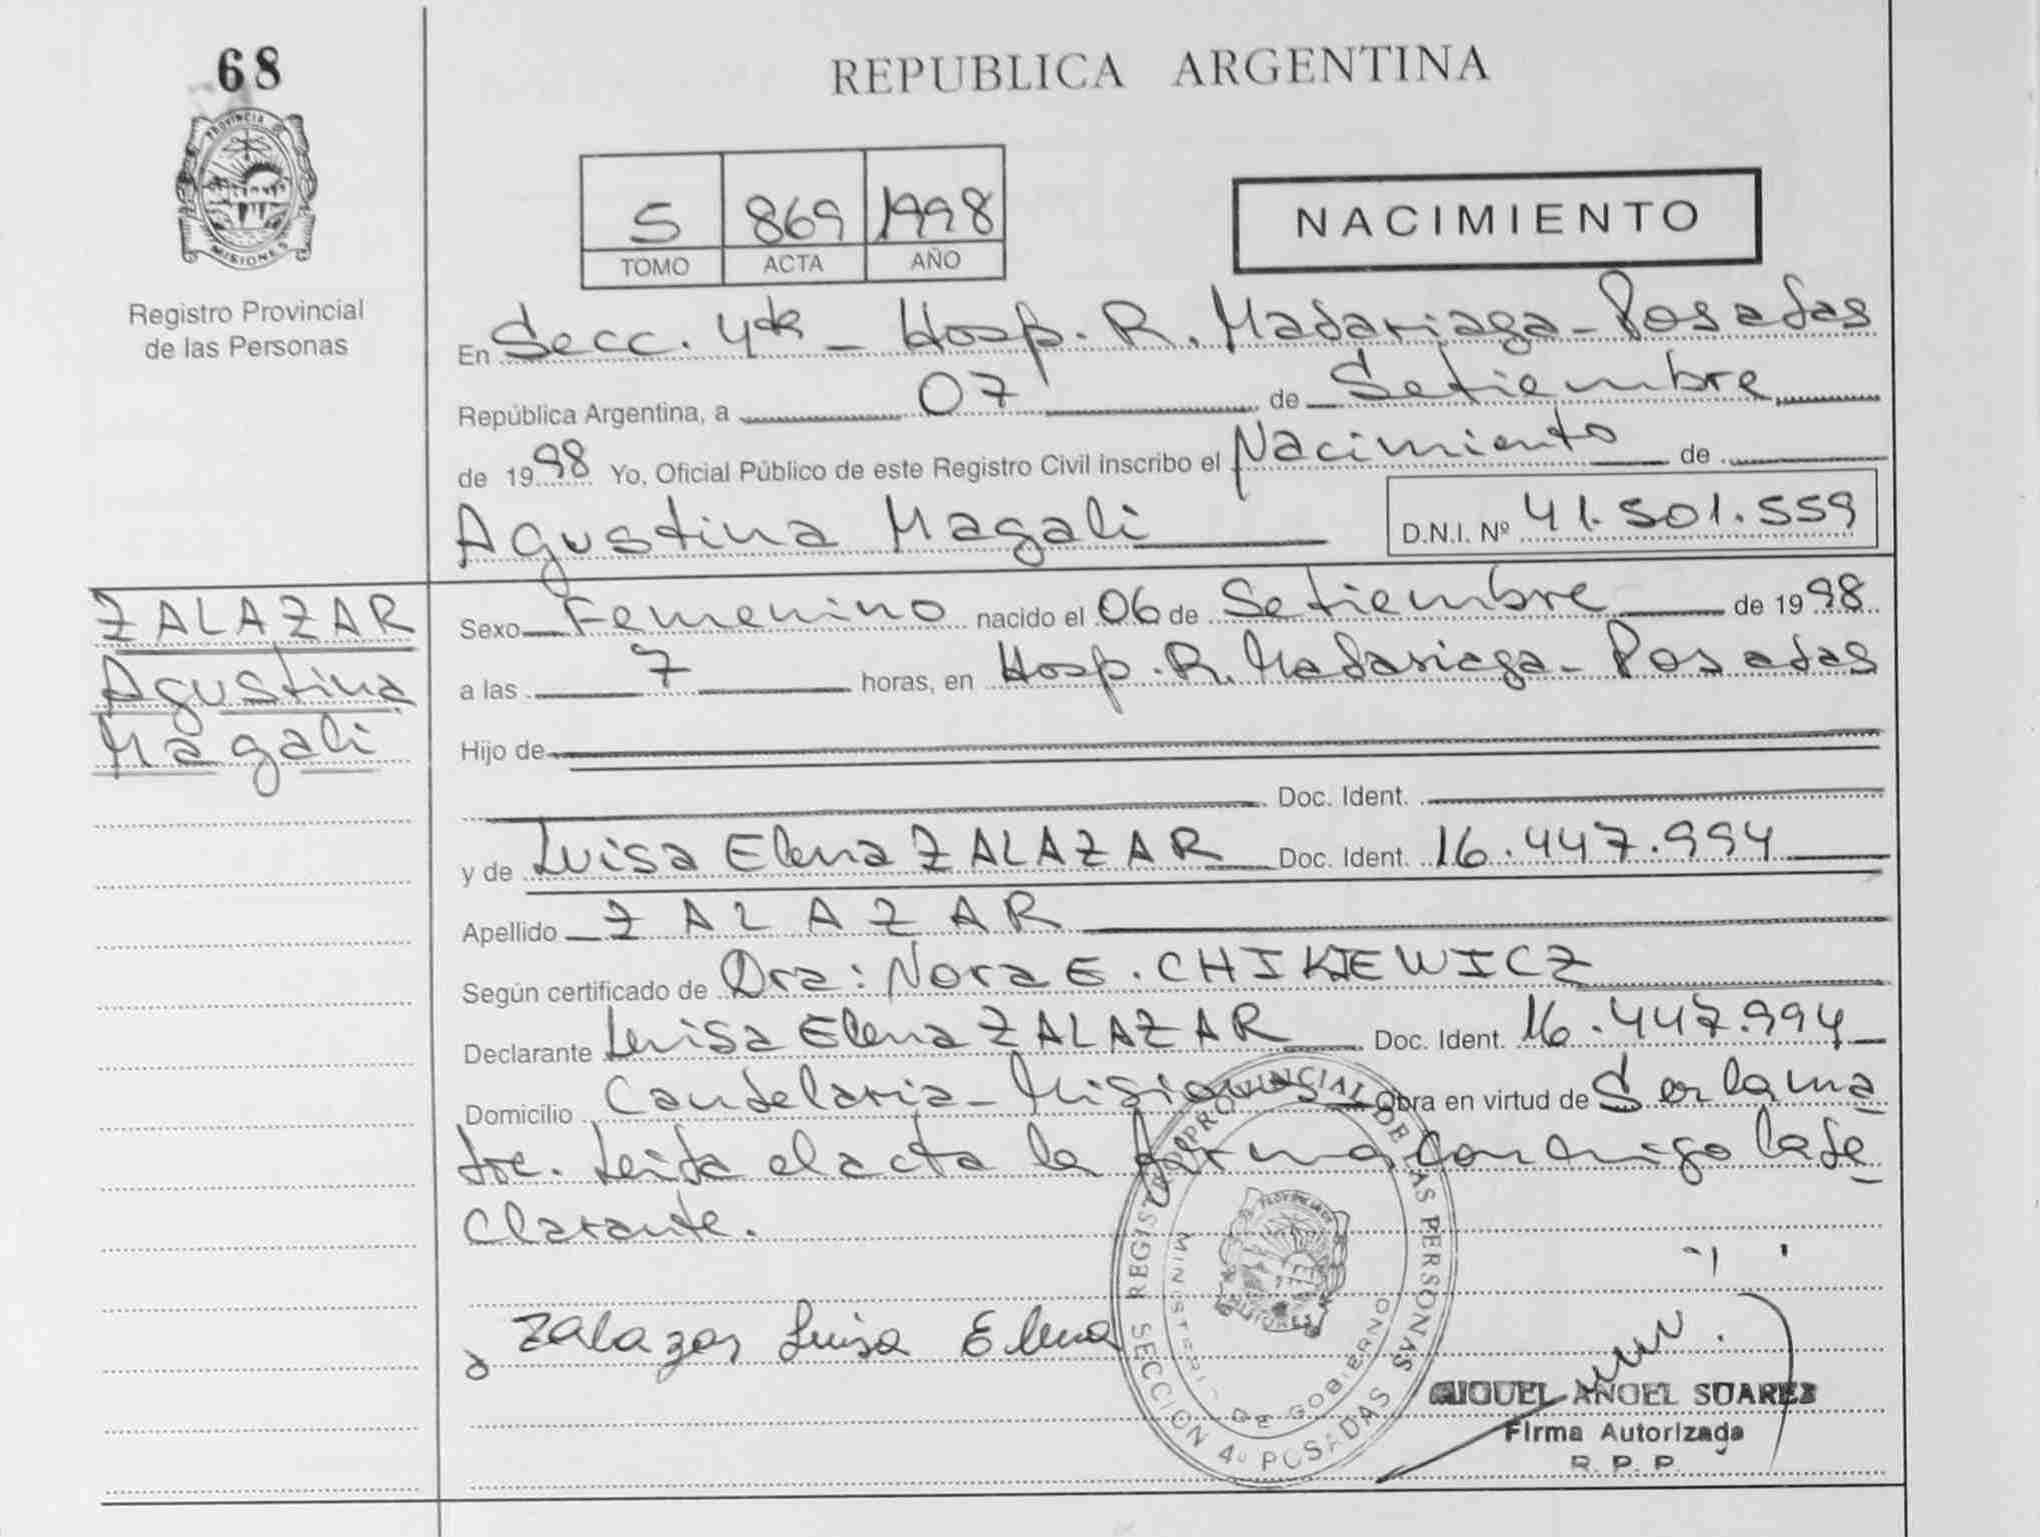 68
REPUBLICA ARGENTINA
PROVINCIA DE
MISIONES
Registro Provincial
de las Personas
5 869 1998
TOMO ACTA AÑO
NACIMIENTO
En Secc. 4ta - Hosp. R. Madariaga - Posadas
República Argentina, a 07 de Setiembre
de 1998 Yo, Oficial Público de este Registro Civil inscribo el Nacimiento de
Agustina Magali D.N.I. Nº 41.501.559
ZALAZAR
Agustina
Magali
Sexo Femenino nacido el 06 de Setiembre de 1998
a las 7 horas, en Hosp. R. Madariaga - Posadas
Hijo de
Doc. Ident.
y de Luisa Elena ZALAZAR Doc. Ident. 16.447.994
Apellido ZALAZAR
Según certificado de Dra: Nora E. CHIKIEWICZ
Declarante Luisa Elena ZALAZAR Doc. Ident. 16.447.994
Domicilio Candelaria - Misiones Obra en virtud de Ser la ma
dre. Leida el acta la firma conmigo la de
clarante.
Zalazar Luisa Elena
REGISTRO PROVINCIAL DE LAS PERSONAS
MINISTERIO DE GOBIERNO
SECCION 4º POSADAS
MIGUEL ANGEL SUAREZ
Firma Autorizada
R. P. P.